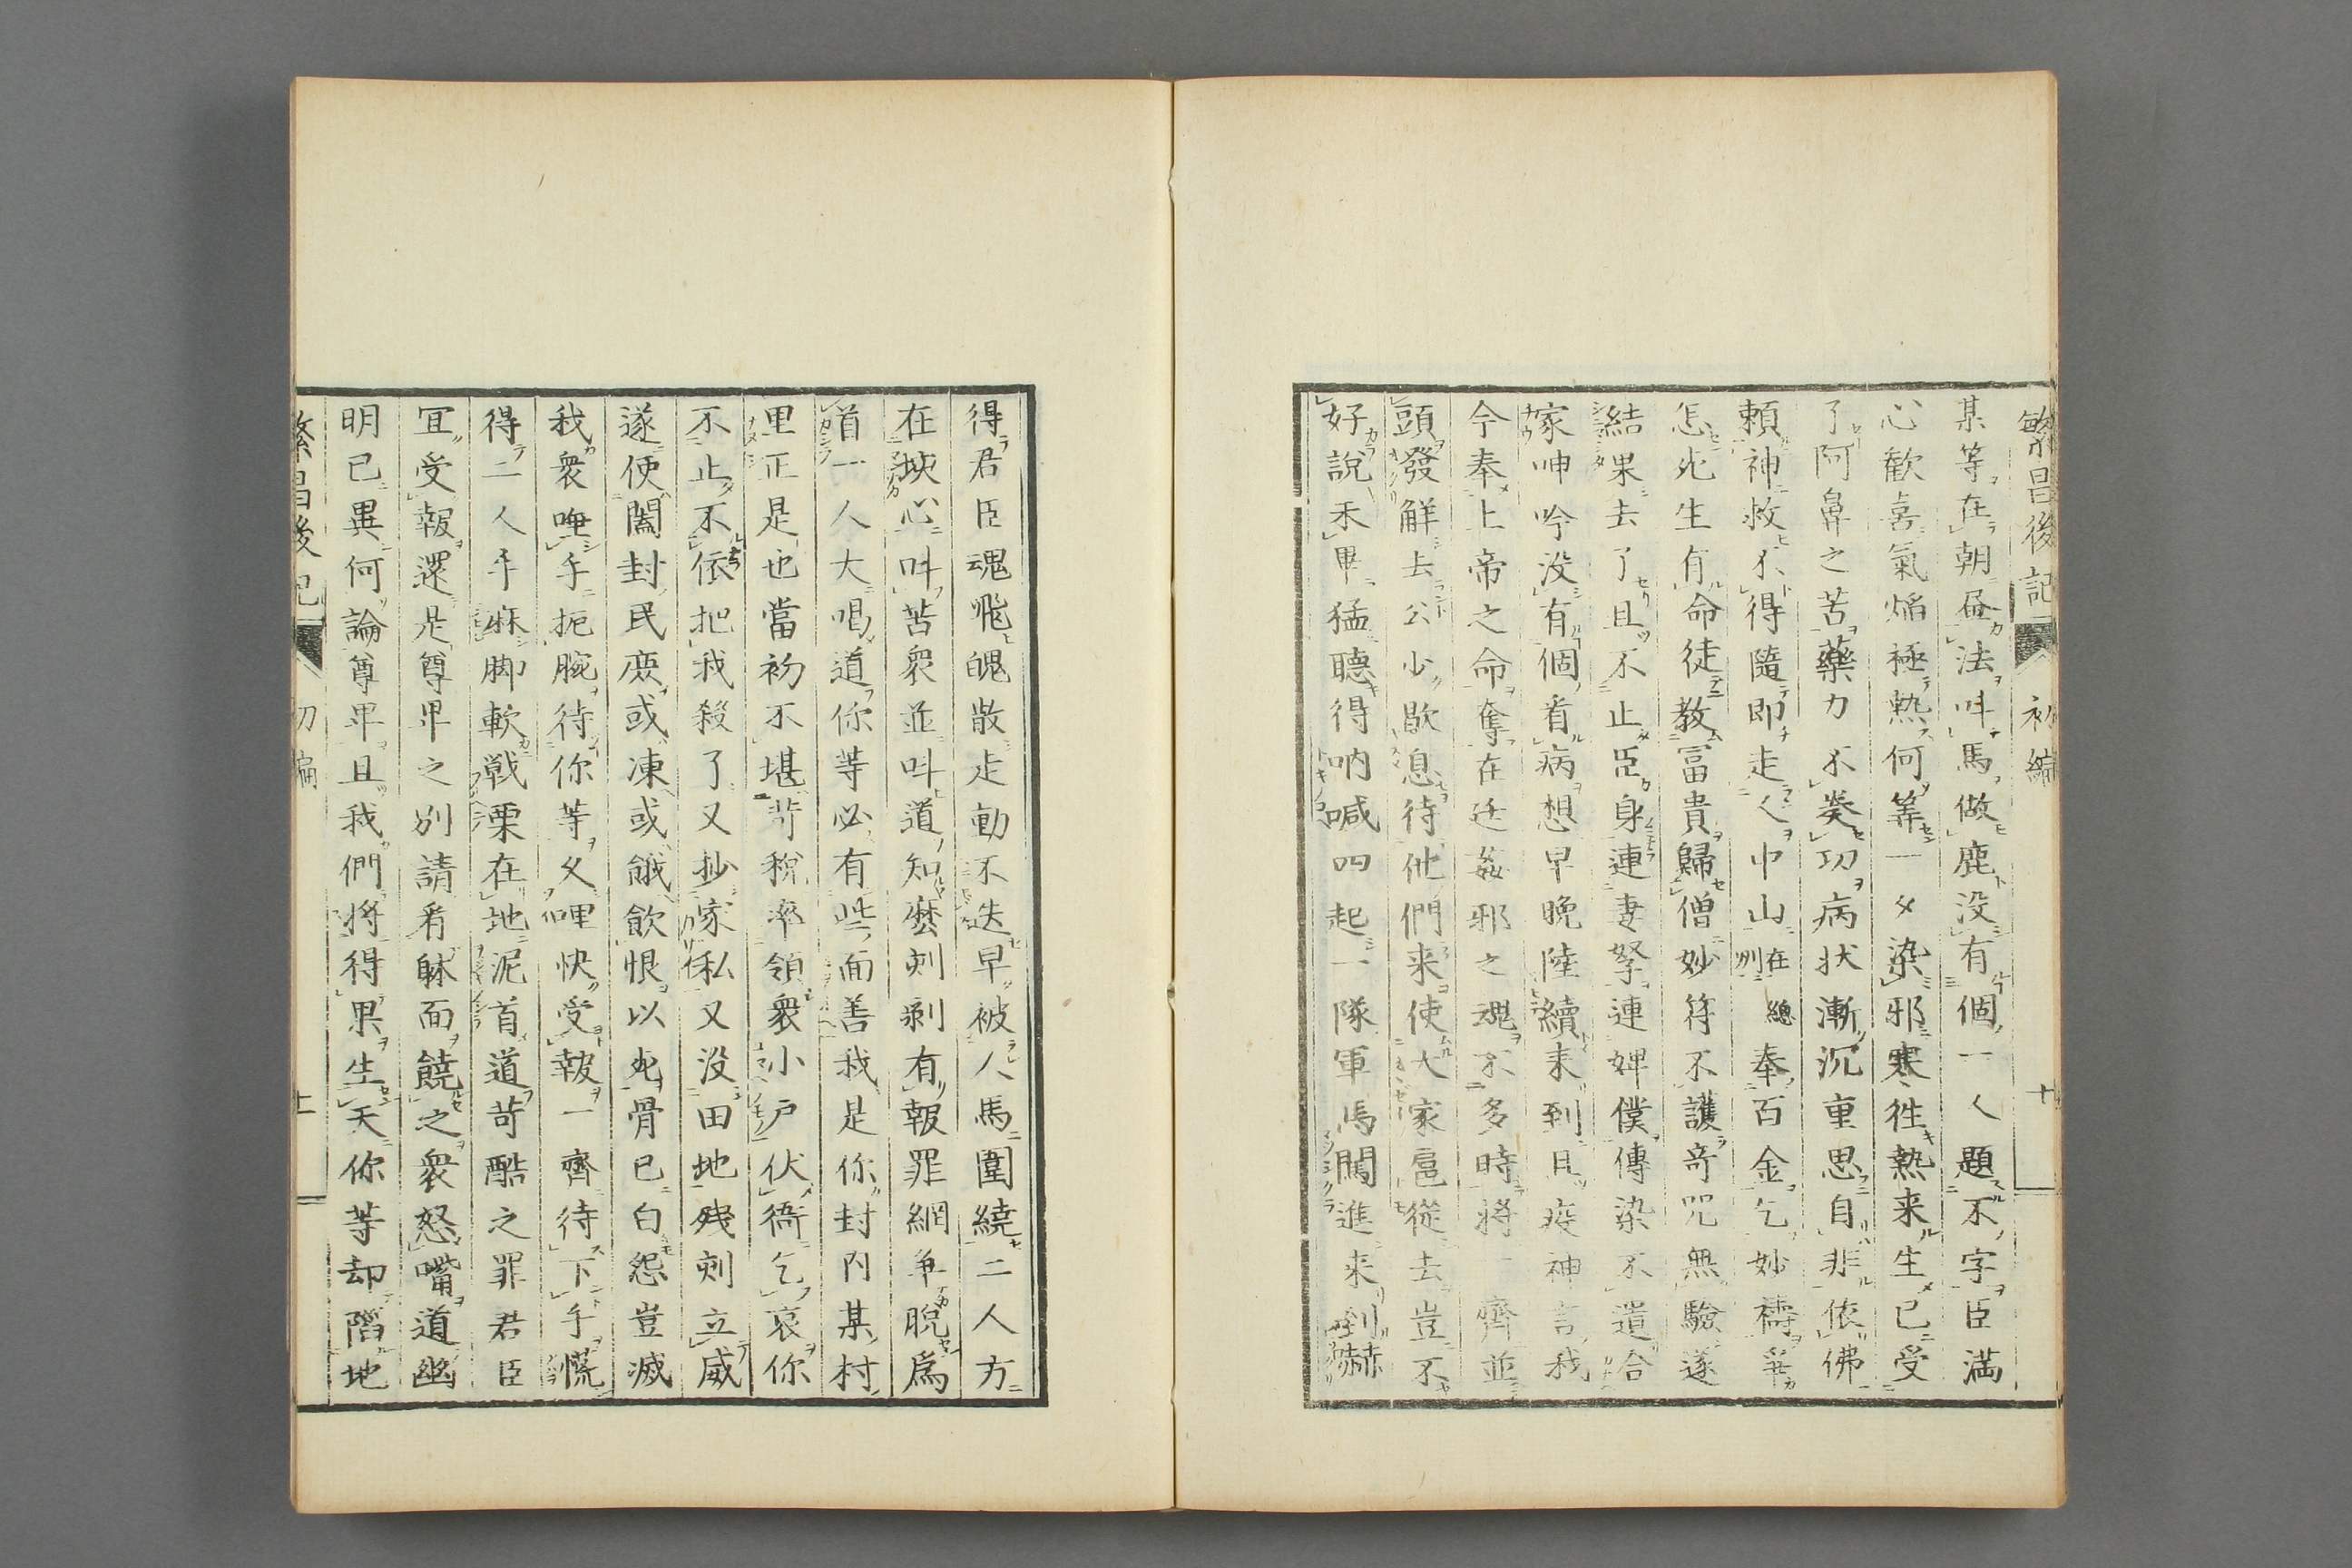 繁昌後記 初編 十
某等在朝昼法叫馬做鹿没有個一人題不字臣満
心歓喜氣焔極熱何等一夕染邪寒徃熱来生已受
了阿鼻之苦藥力不發功病状漸沉重思自非依佛
頼神救不得隨即走人中山在總州奉百金乞妙禱
怎死生有命徒教冨貴歸僧妙符不護奇咒無驗遂
結果去了且不止臣身連妻孥連婢僕傳染不遺合
家呻吟没有個看病想早晩陸續来到且疫神言我
今奉上帝之命奪在廷姦邪之魂不多時將一齊並
頭發觧去公少歇息待他們来使大家扈從去豈不
好説禾畢猛聴得吶喊四起一隊軍馬闖進来到赫
得君臣魂飛魄散走動不迭早被人馬圍繞二人方
在心叫苦衆並叫道知麼剡剥有報罪網爭脱爲
首一人大喝道你等必有些面善我是你封内某村
里正是也當初不堪苛税率領衆小戸伏衙乞哀你
不止不依把我殺了又抄家私又没田地残剡立威
遂使闔封民庶或凍或餓飲恨以死骨已白怨豈滅
我衆唾手扼腕待你等久哩快受報一齊待下手慌
得二人手麻脚軟戦栗在地泥首道苛酷之罪君臣
冝受報還是尊卑之別請看躰面饒之衆怒嘴道幽
明已異何論尊卑且我們將得果生天你等却陷地
繁昌後記 初編 十